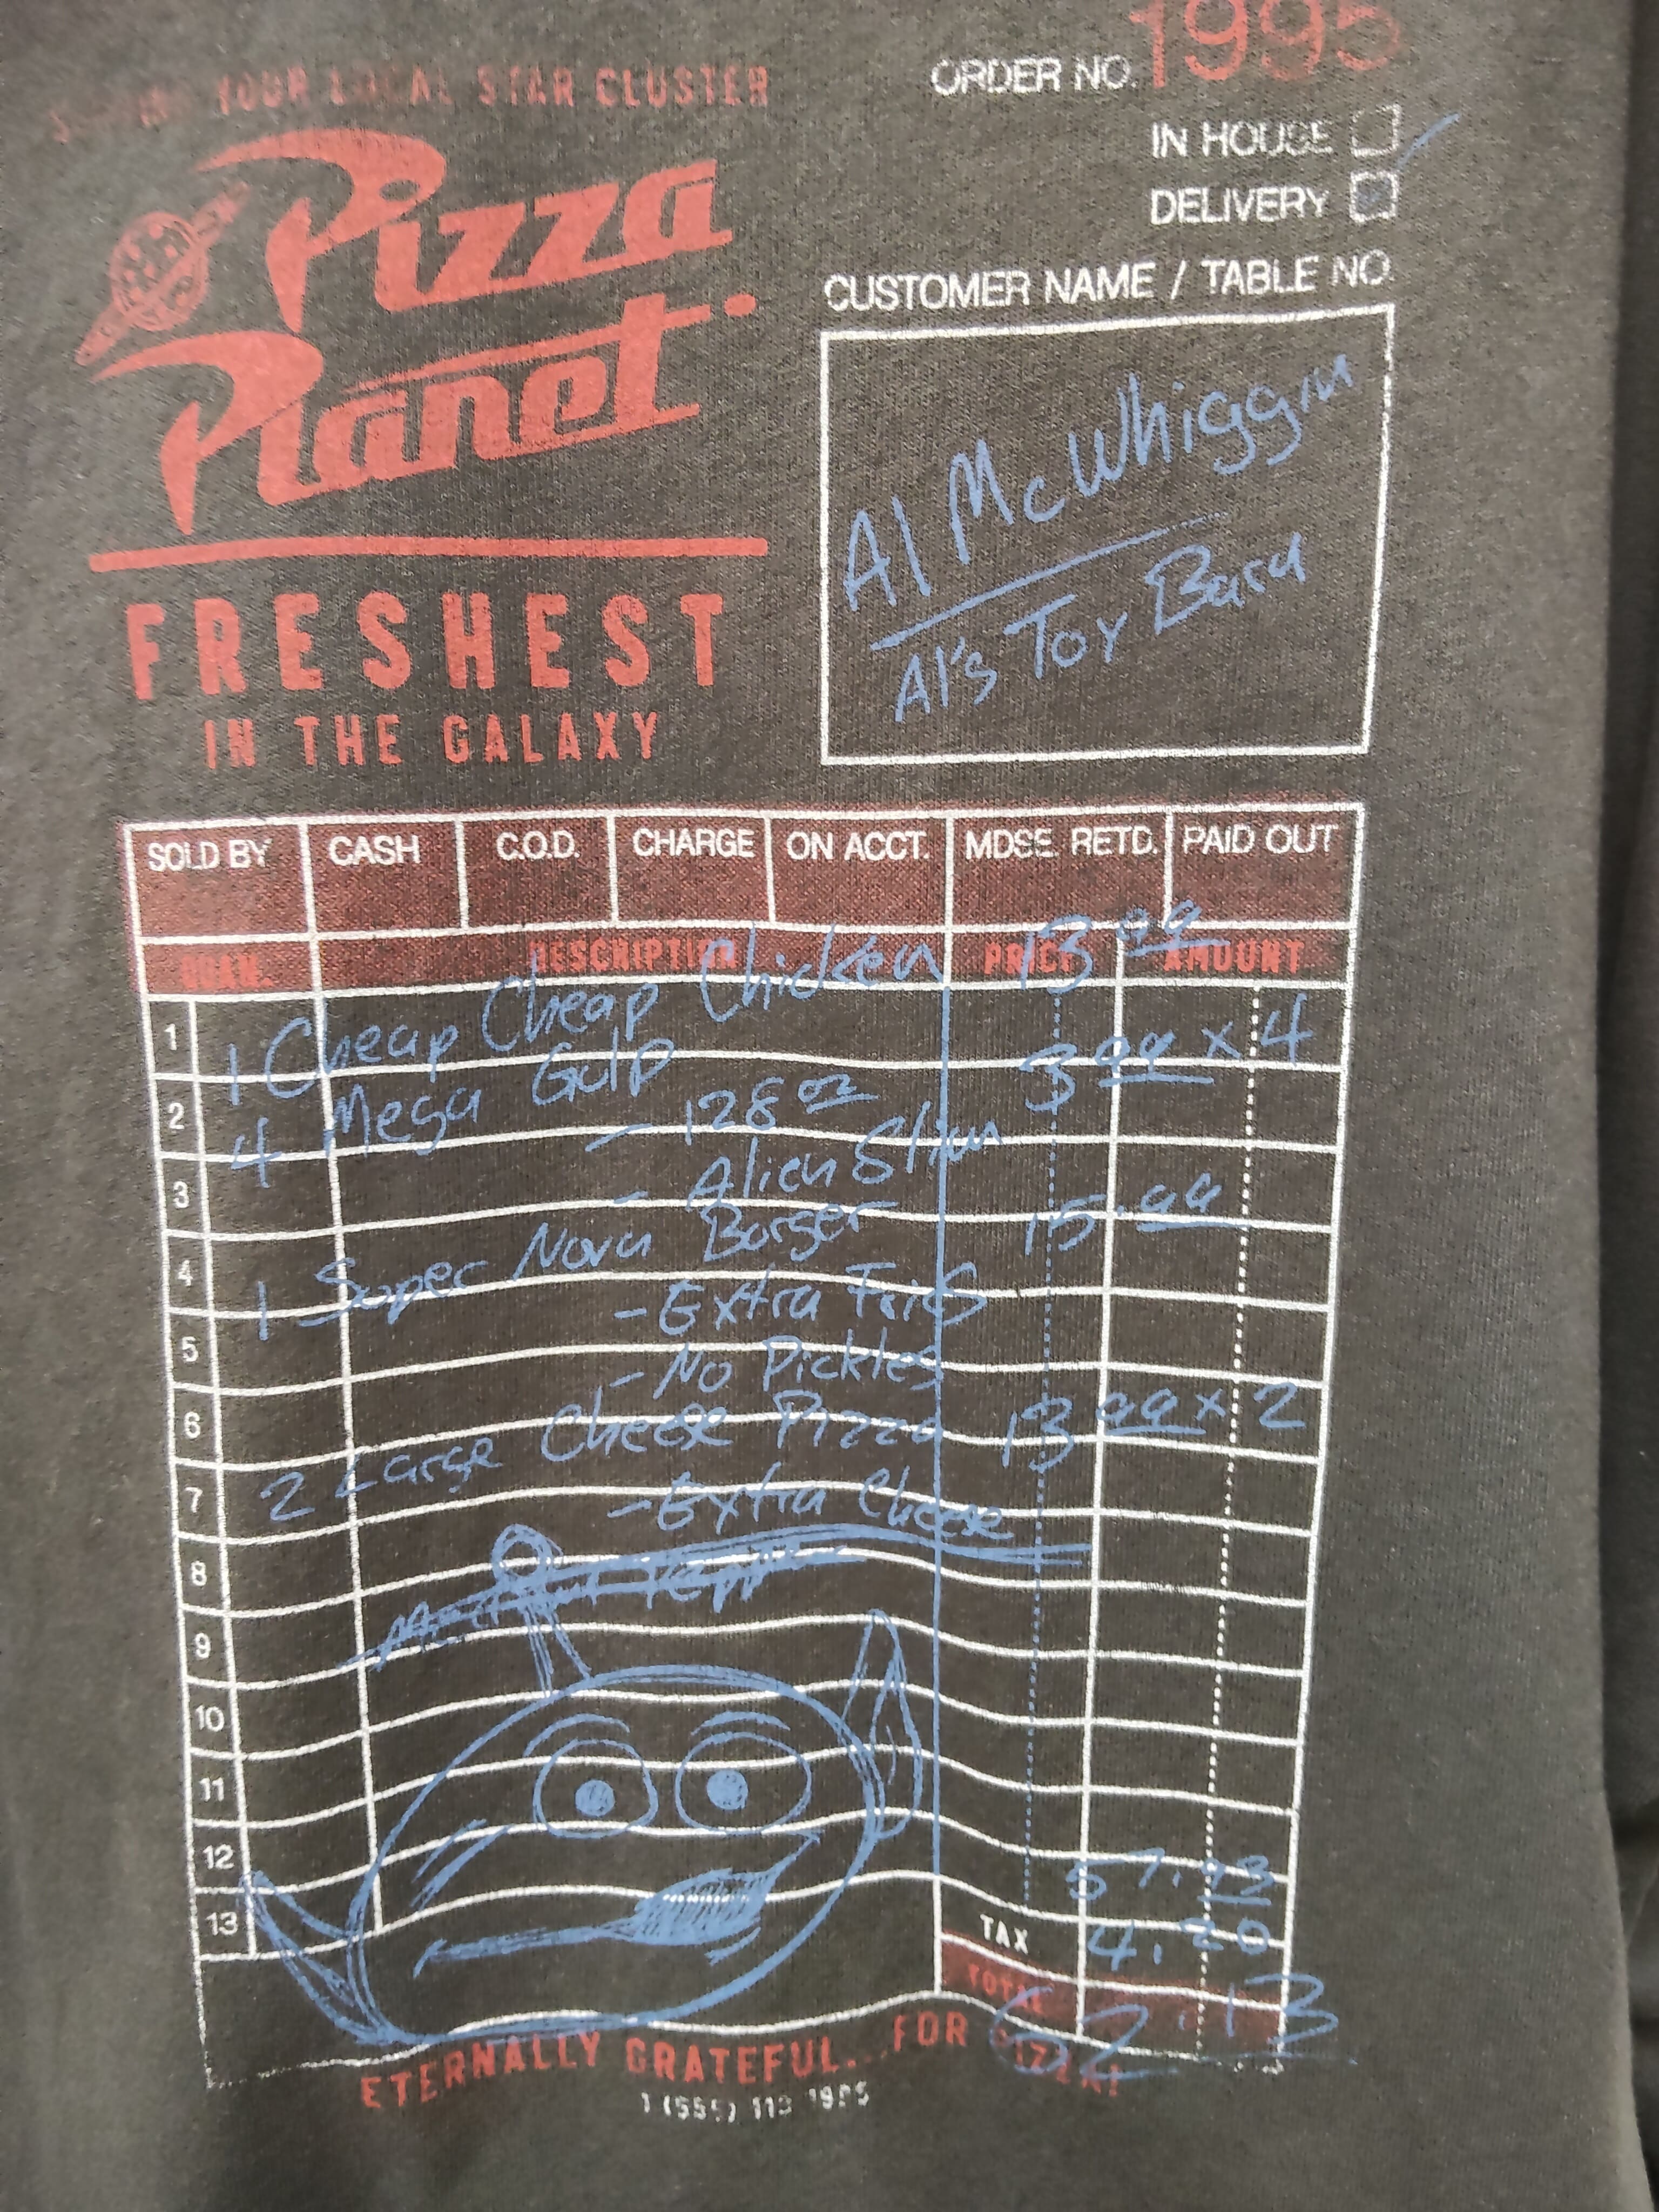 YOUR LOCAL STAR CLUSTER
Pizza
Planet
FRESHEST
IN THE GALAXY
ORDER NO. 1995
IN HOUSE
DELIVERY
CUSTOMER NAME / TABLE NO.
Al McWhiggin
Al's Toy Barn
SOLD BY CASH C.O.D. CHARGE ON ACCT. MDSE. RETD. PAID OUT
QUAN. DESCRIPTION PRICE AMOUNT
1 1 Cheap Cheap Chicken 13 99
2 4 Mega Gulp 3 99 x 4
- 128 oz
3 - Alien Slim
4 1 Super Nova Burger 15.99
5 - Extra Fries
6 - No Pickles
7 2 Large Cheese Pizza 13 99 x 2
8 - Extra Cheese
9
10
11
12
13 57.93
TAX 4.20
TOTAL 62.13
ETERNALLY GRATEFUL... FOR PIZZA!
1 (555) 113 1995